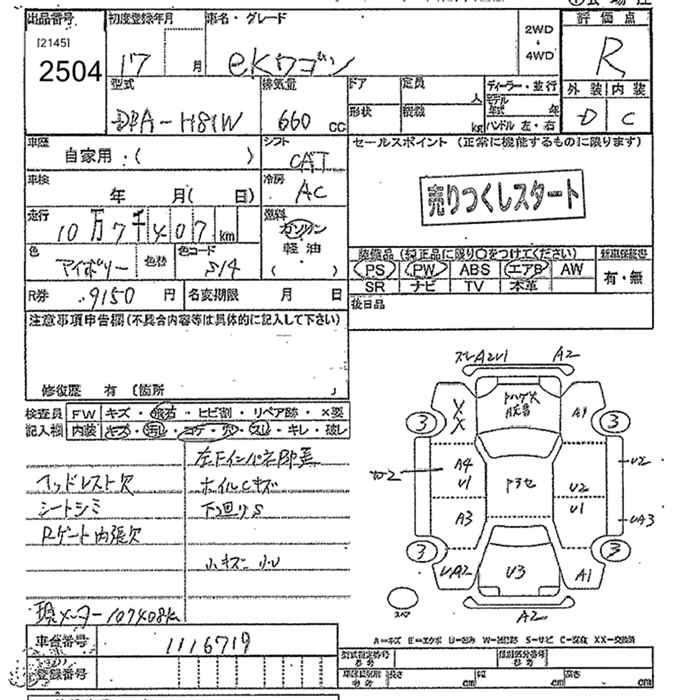 出品番号 初度登録年月 車名・グレード 2WD 評価点
[2145]
2504 17 月 eKワゴン ・ 4WD R
型式 排気量 ドア 定員 人 ディーラー・並行 外装 内装
DBA-H81W 660 cc 形状 積載 kg モデル年式 年 D C
ハンドル 左・右
車歴 自家用:( ) シフト CAT セールスポイント (正常に機能するものに限ります)
車検 年 月( 日) 冷房 AC 売りつくしスタート
走行 10万7千407km 燃料 ガソリン
色 アイボリー 色替 色コード S14 軽油 ( )
装備品(純正品に限り○をつけてください) 新車保証書
PS PW ABS エアB AW 有・無
SR ナビ TV 本革
R券 9150円 名変期限 月 日 後日品
注意事項申告欄(不具合内容等は具体的に記入して下さい)
修復歴 有 (箇所 )
検査員 FW キズ・飛石・ヒビ割・リペア跡・×要
記入欄 内装 キズ・汚れ・コゲ・穴・スレ・キレ・破レ
左Fインパネ部
ヘッドレスト欠 ホイルCキズ
シートシミ 下回りS
Rゲート内張欠
小キズ 小U
現メーター107408k
車台番号 1116719
登録番号
スレA2U1 A2
XX A1
3 3
A4 U1 アラセ U2 U2
A3 U1 UA3
3 3
UA2 U3 A1
A2
A=キズ E=エクボ U=凹み W=補修跡 S=サビ C=腐食 XX=交換済
型式指定番号 類別区分番号
長さ cm 幅 cm 高さ cm